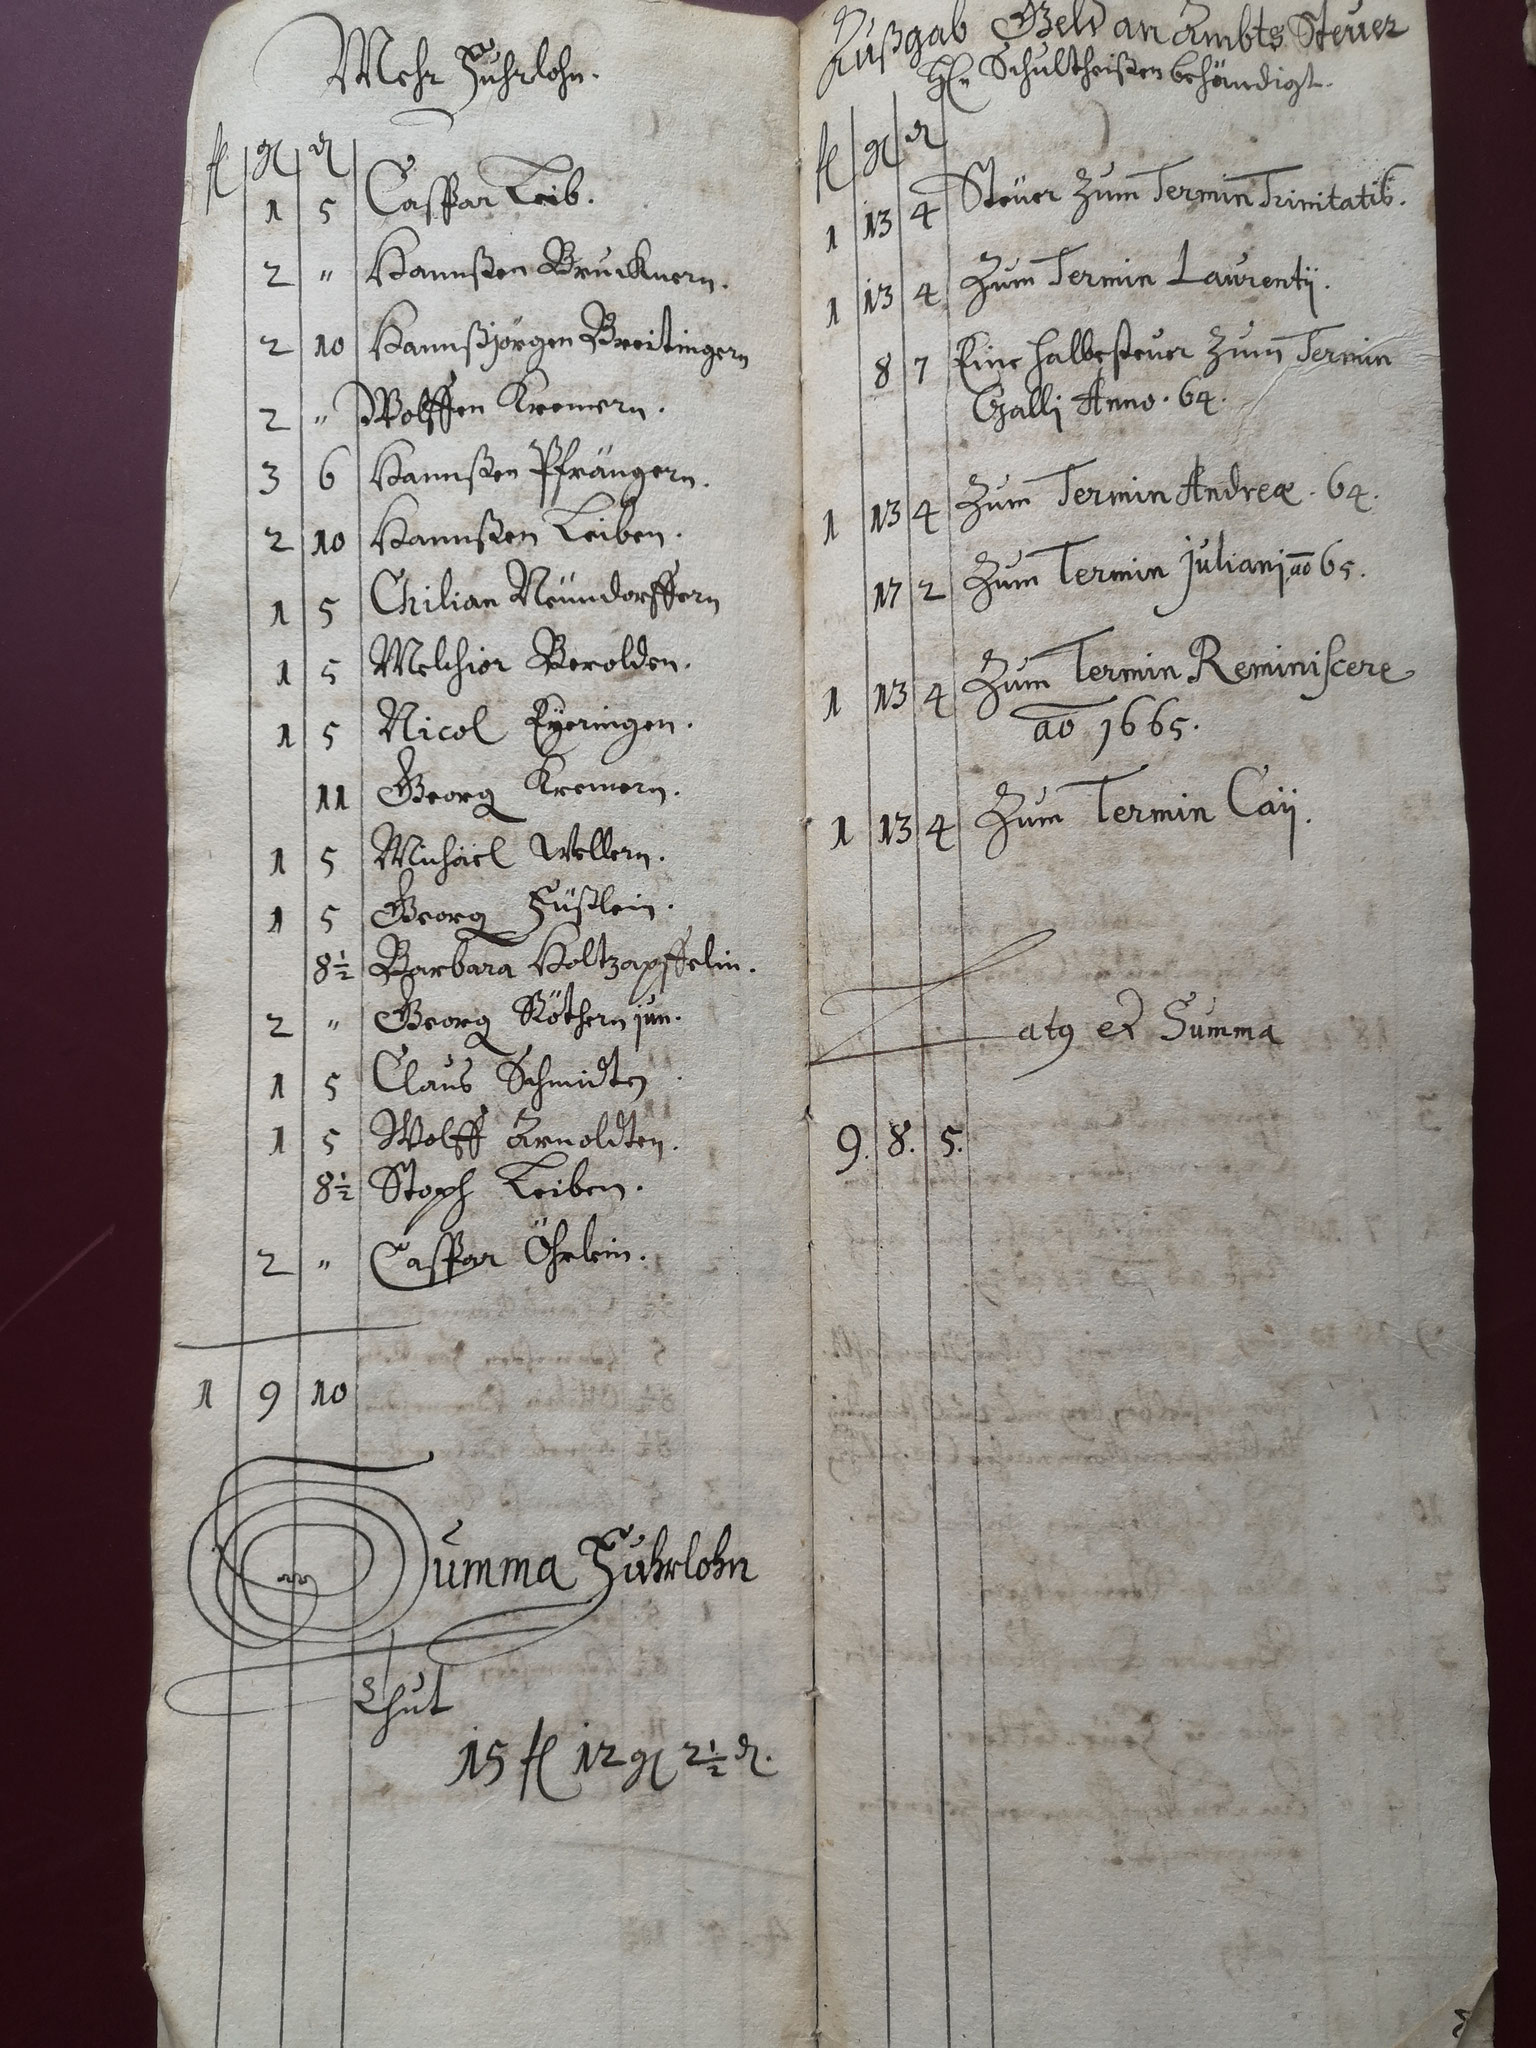 Mehr Fuhrlohn.
fl gl d
1 5 Caspar Leib.
2 " Hannßen Brucknern.
2 10 Hannßjörgen Breitingern
2 " Wolffen Kremern.
3 6 Hannßen Pfrängern.
2 10 Hannßen Leiben.
1 5 Chilian Neündorffern
1 5 Melchior Berolden.
1 5 Nicol Eyeringen.
11 Georg Kremern.
1 5 Michael Wellern.
1 5 Georg Füßlein.
8½ Barbara Holtzapffelin.
2 " Georg Röthern jun.
1 5 Claus Schmidten
1 5 Wolff Arnoldten.
8½ Stoph Leiben.
2 " Caspar Öhrlein.
1 9 10
Summa Fuhrlohn
Thut
15 fl 12 gl 2½ d.
Außgab Geld an Ambts Steuer
Hl. Schultheißen behändigt.
fl gl d
1 13 4 Steüer Zum Termin Trinitatis.
1 13 4 Zum Termin Laurentij.
8 7 Eine halbe steuer Zum Termin
Galli Anno. 64.
1 13 4 Zum Termin Andreæ. 64.
17 2 Zum Termin Juliani ao 65.
1 13 4 Zum Termin Reminiscere
ao 1665.
1 13 4 Zum Termin Caij.
Latg Summa
9. 8. 5.